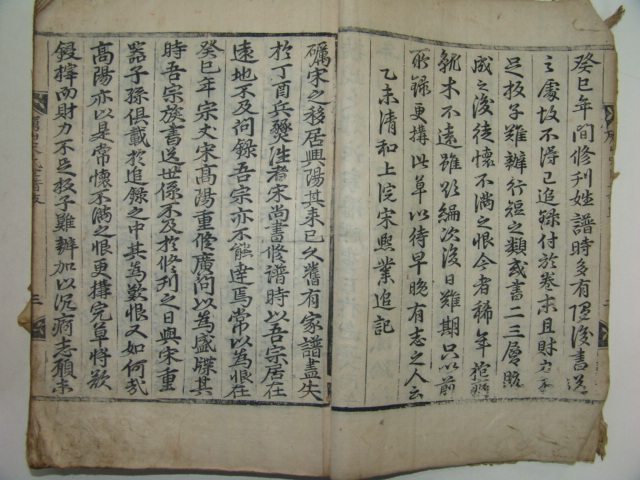 癸巳年間修刊姓譜時多有隨後書送
之處故不得已追錄付於卷末且財力不
足板子難辦行短之類或書二三層既
成之後徒懷不滿之恨今者稀年猝
就木不遠雖欲編次後日難期只以前
所錄更搆此草以待早晩有志之人云
乙未清和上浣宋熙業追記
礪宋之移居興陽其来已久舊有家譜盡失
於丁酉兵燹性者宋尚書修譜時以吾宗居在
遠地不及问録吾宗亦不能達焉常以為恨在
癸巳年宗丈宋高陽重修廣問以為盛牒其
時吾宗族書送世係不及於修刊之日與宋重
器子孫俱載於追錄之中其為歎恨又如何哉
高陽亦以是常懷不滿之恨更搆完草將欲
鋟梓而財力不足板子難辦加以沉痾志願未